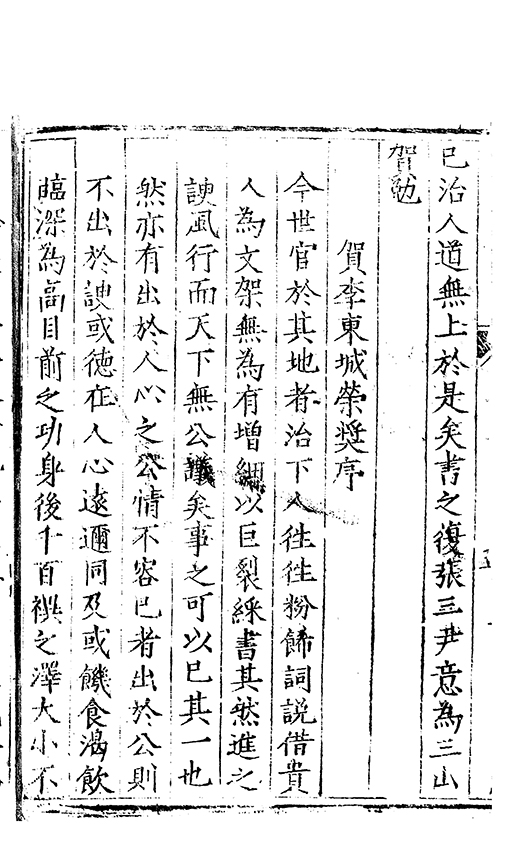 已治人道無上於是矣書之復張三尹意為三山
賀勉
賀李東城榮奬序
今世官於其地者治下人徃徃粉餙詞説借貴
人為文架無為有增綱以巨裂綵書其然進之
諛風行而天下無公議矣事之可以已其一也
然亦有出於人心之公情不容已者出於公則
不出於諛或德在人心遠邇同及或饑食渴飲
臨深為高目前之功身後千百禩之澤大小不